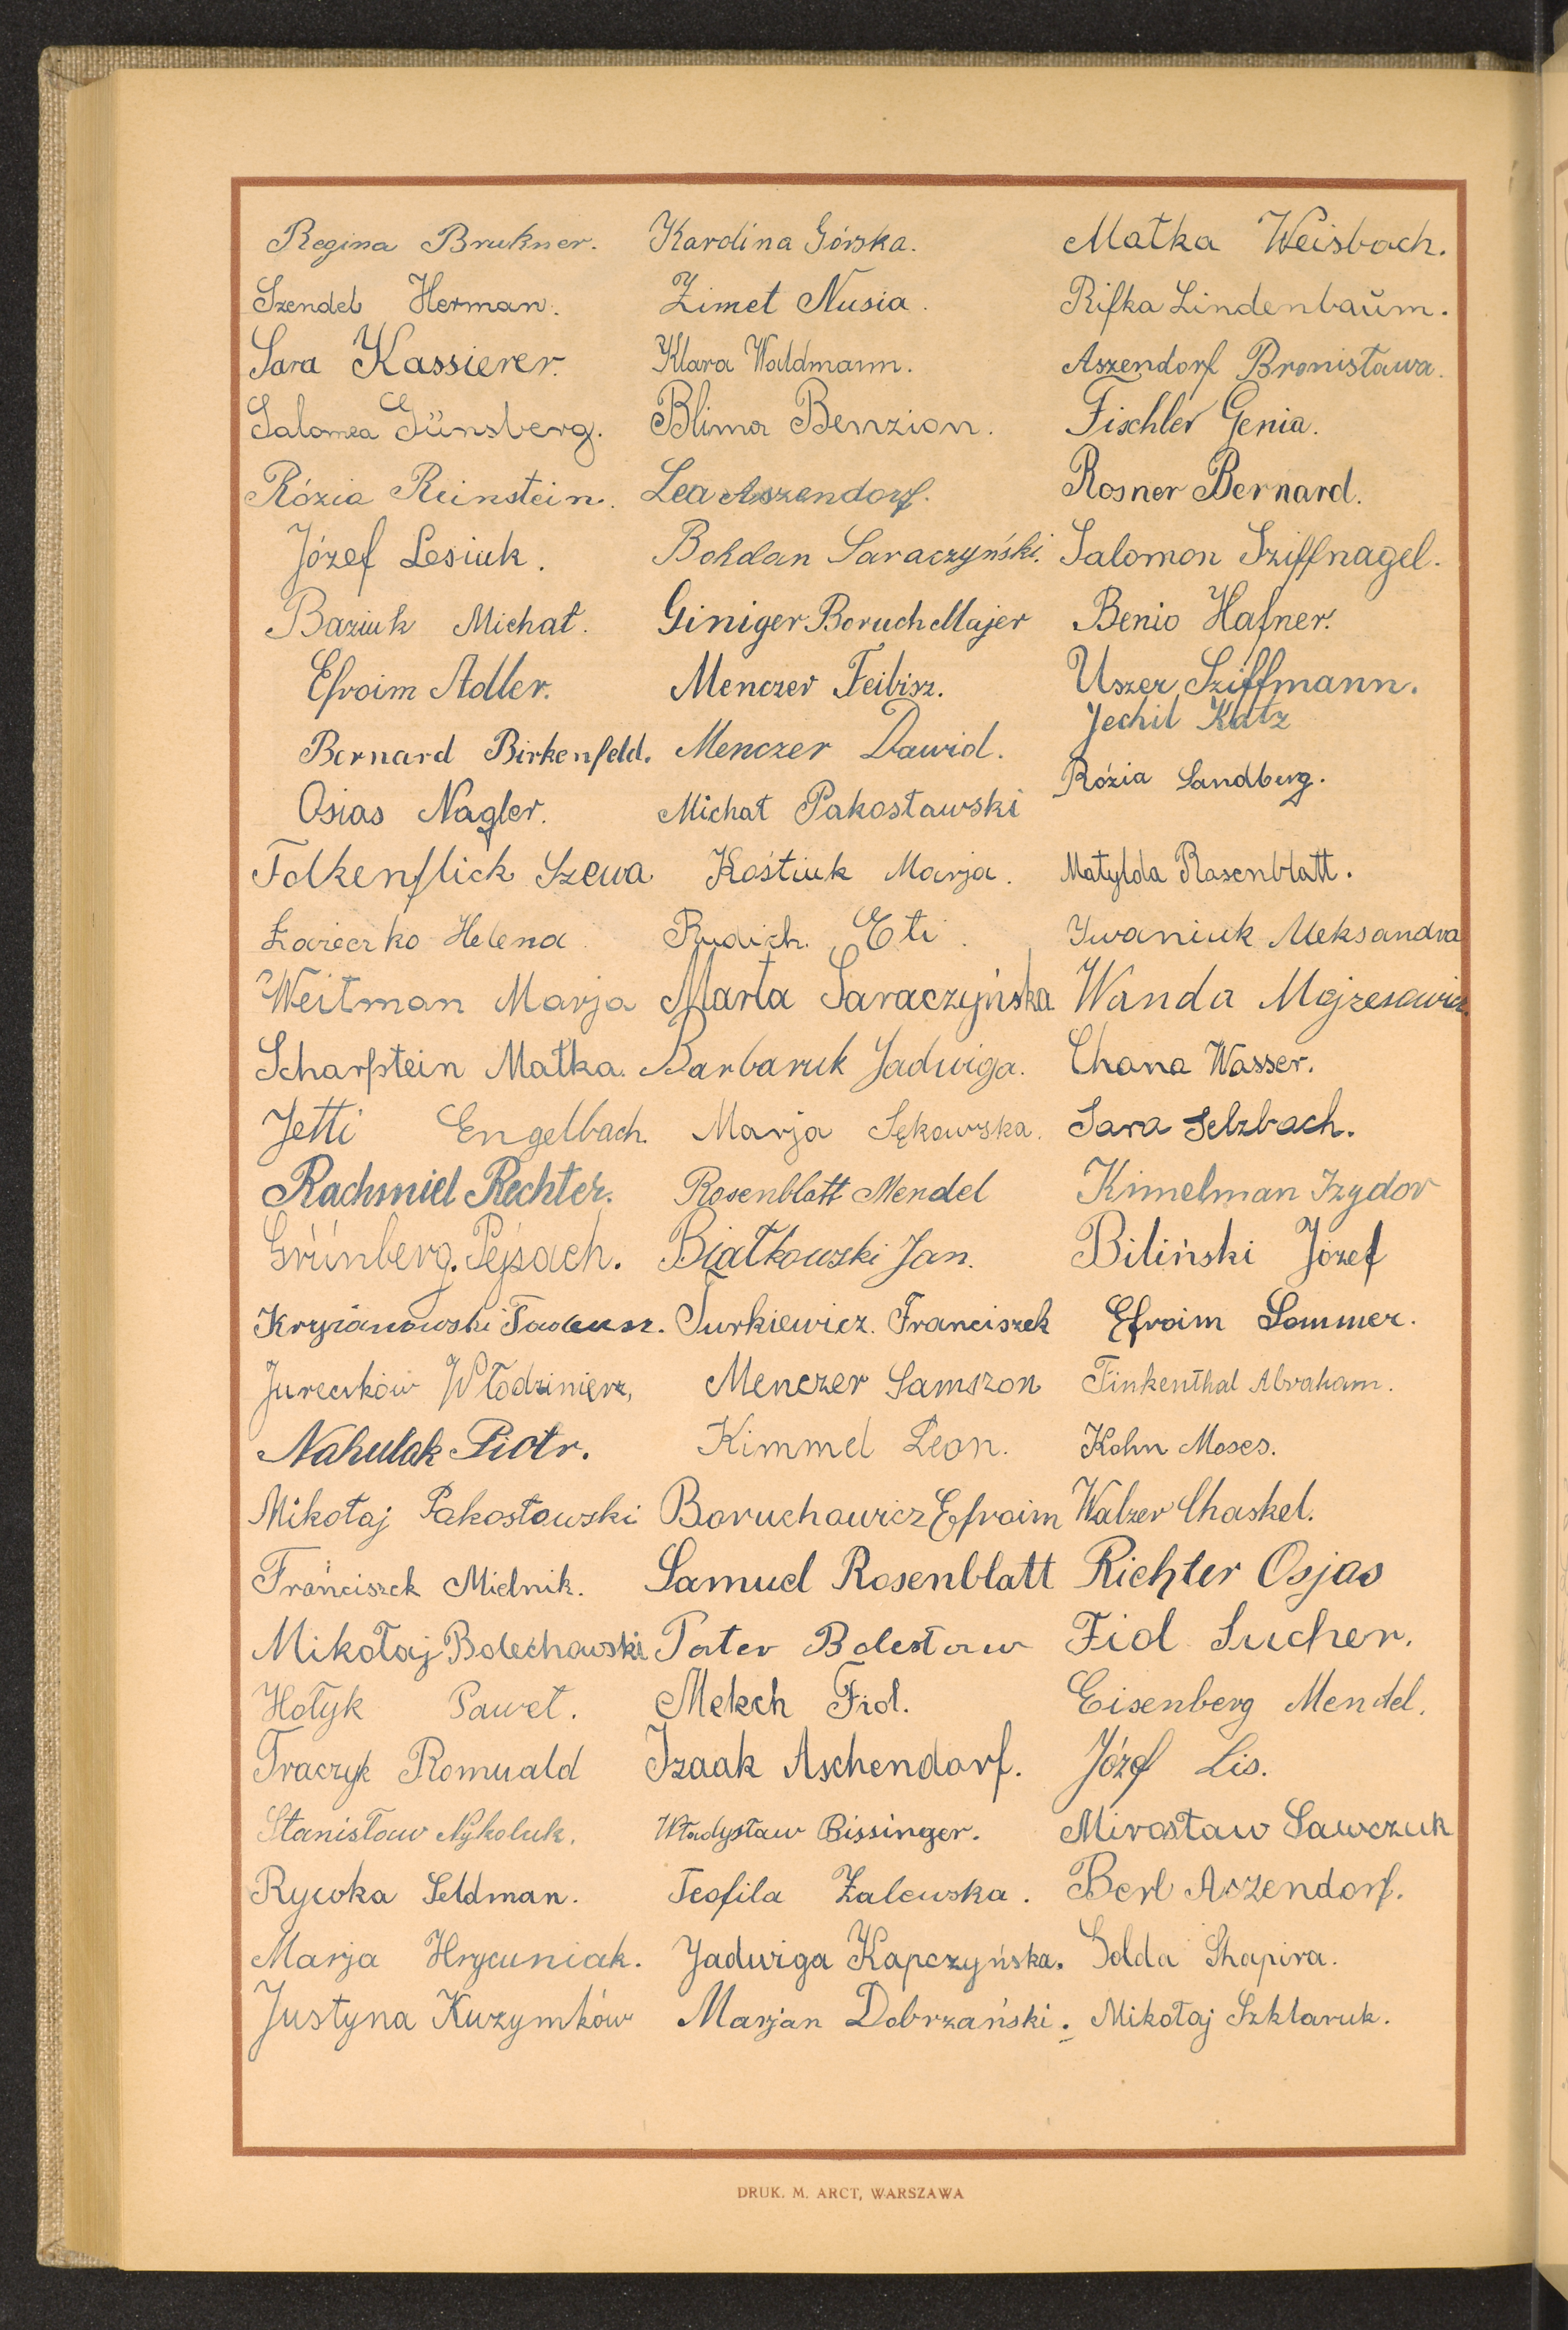 Regina Brukner. Karolina Górska. Matka Weisbach.
Szendel Herman. Zimet Nusia. Rifka Lindenbaŭm.
Sara Kassierer. Klara Waldmann. Aszendorf Bronisława.
Salomea Günsberg. Blima Benzion. Fischler Genia.
Rózia Reinstein. Lea Aszendorf. Rosner Bernard.
Józef Lesiuk. Bohdan Saraczyński. Salomon Sziffnagel.
Baziuk Michał. Giniger Boruch Majer Benio Hafner.
Efroim Adler. Menczer Feibisz. Uszer Sziffmann.
Jechil Katz
Bernard Birkenfeld. Menczer Dawid.
Rózia Sandberg.
Osias Nagler. Michał Pakosławski
Falkenflick Szewa Kostiuk Marja. Matylda Rosenblatt.
Helena Rudich. Eti. Iwaniuk Aleksandra
Weitman Marja Marta Saraczyńska Wanda
Scharfstein Małka. Barbaruk Jadwiga. Chana Wasser.
Jetti Engelbach. Marja Sękowska. Sara Selzbach.
Rachmiel Rechter. Rosenblatt Mendel Kimelman Izydor
Grünberg. Pejsach. Białkowski Jan. Biliński Józef
Kryżanowski Tadeusz. Turkiewicz. Franciszek Efroim Sommer.
Jureczków Włodzimierz, Menczer Samszon Finkenthal Abraham.
Nahulak Piotr. Kimmel Leon. Kohn Moses.
Mikołaj Pakosławski Boruchowicz Efroim Walzer Chaskel.
Franciszek Mielnik. Samuel Rosenblatt Richter Osjas
Mikołaj Bolechowski Pater Bolesław Fid Sucher.
Hołyk Paweł. Mekch Fid. Eisenberg Mendel.
Traczyk Romuald Izaak Aschendorf. Józef Lis.
Stanisław Nykoluk. Władysław Bissinger. Mirosław Sawczuk
Rywka Seldman. Teofila Zalewska. Berl Aszendorf.
Marja Hrycuniak. Jadwiga Kapczyńska. Golda Shapira.
Justyna Kuzymków Marjan Dobrzański. Mikołaj Szklaruk.
DRUK. M. ARCT, WARSZAWA